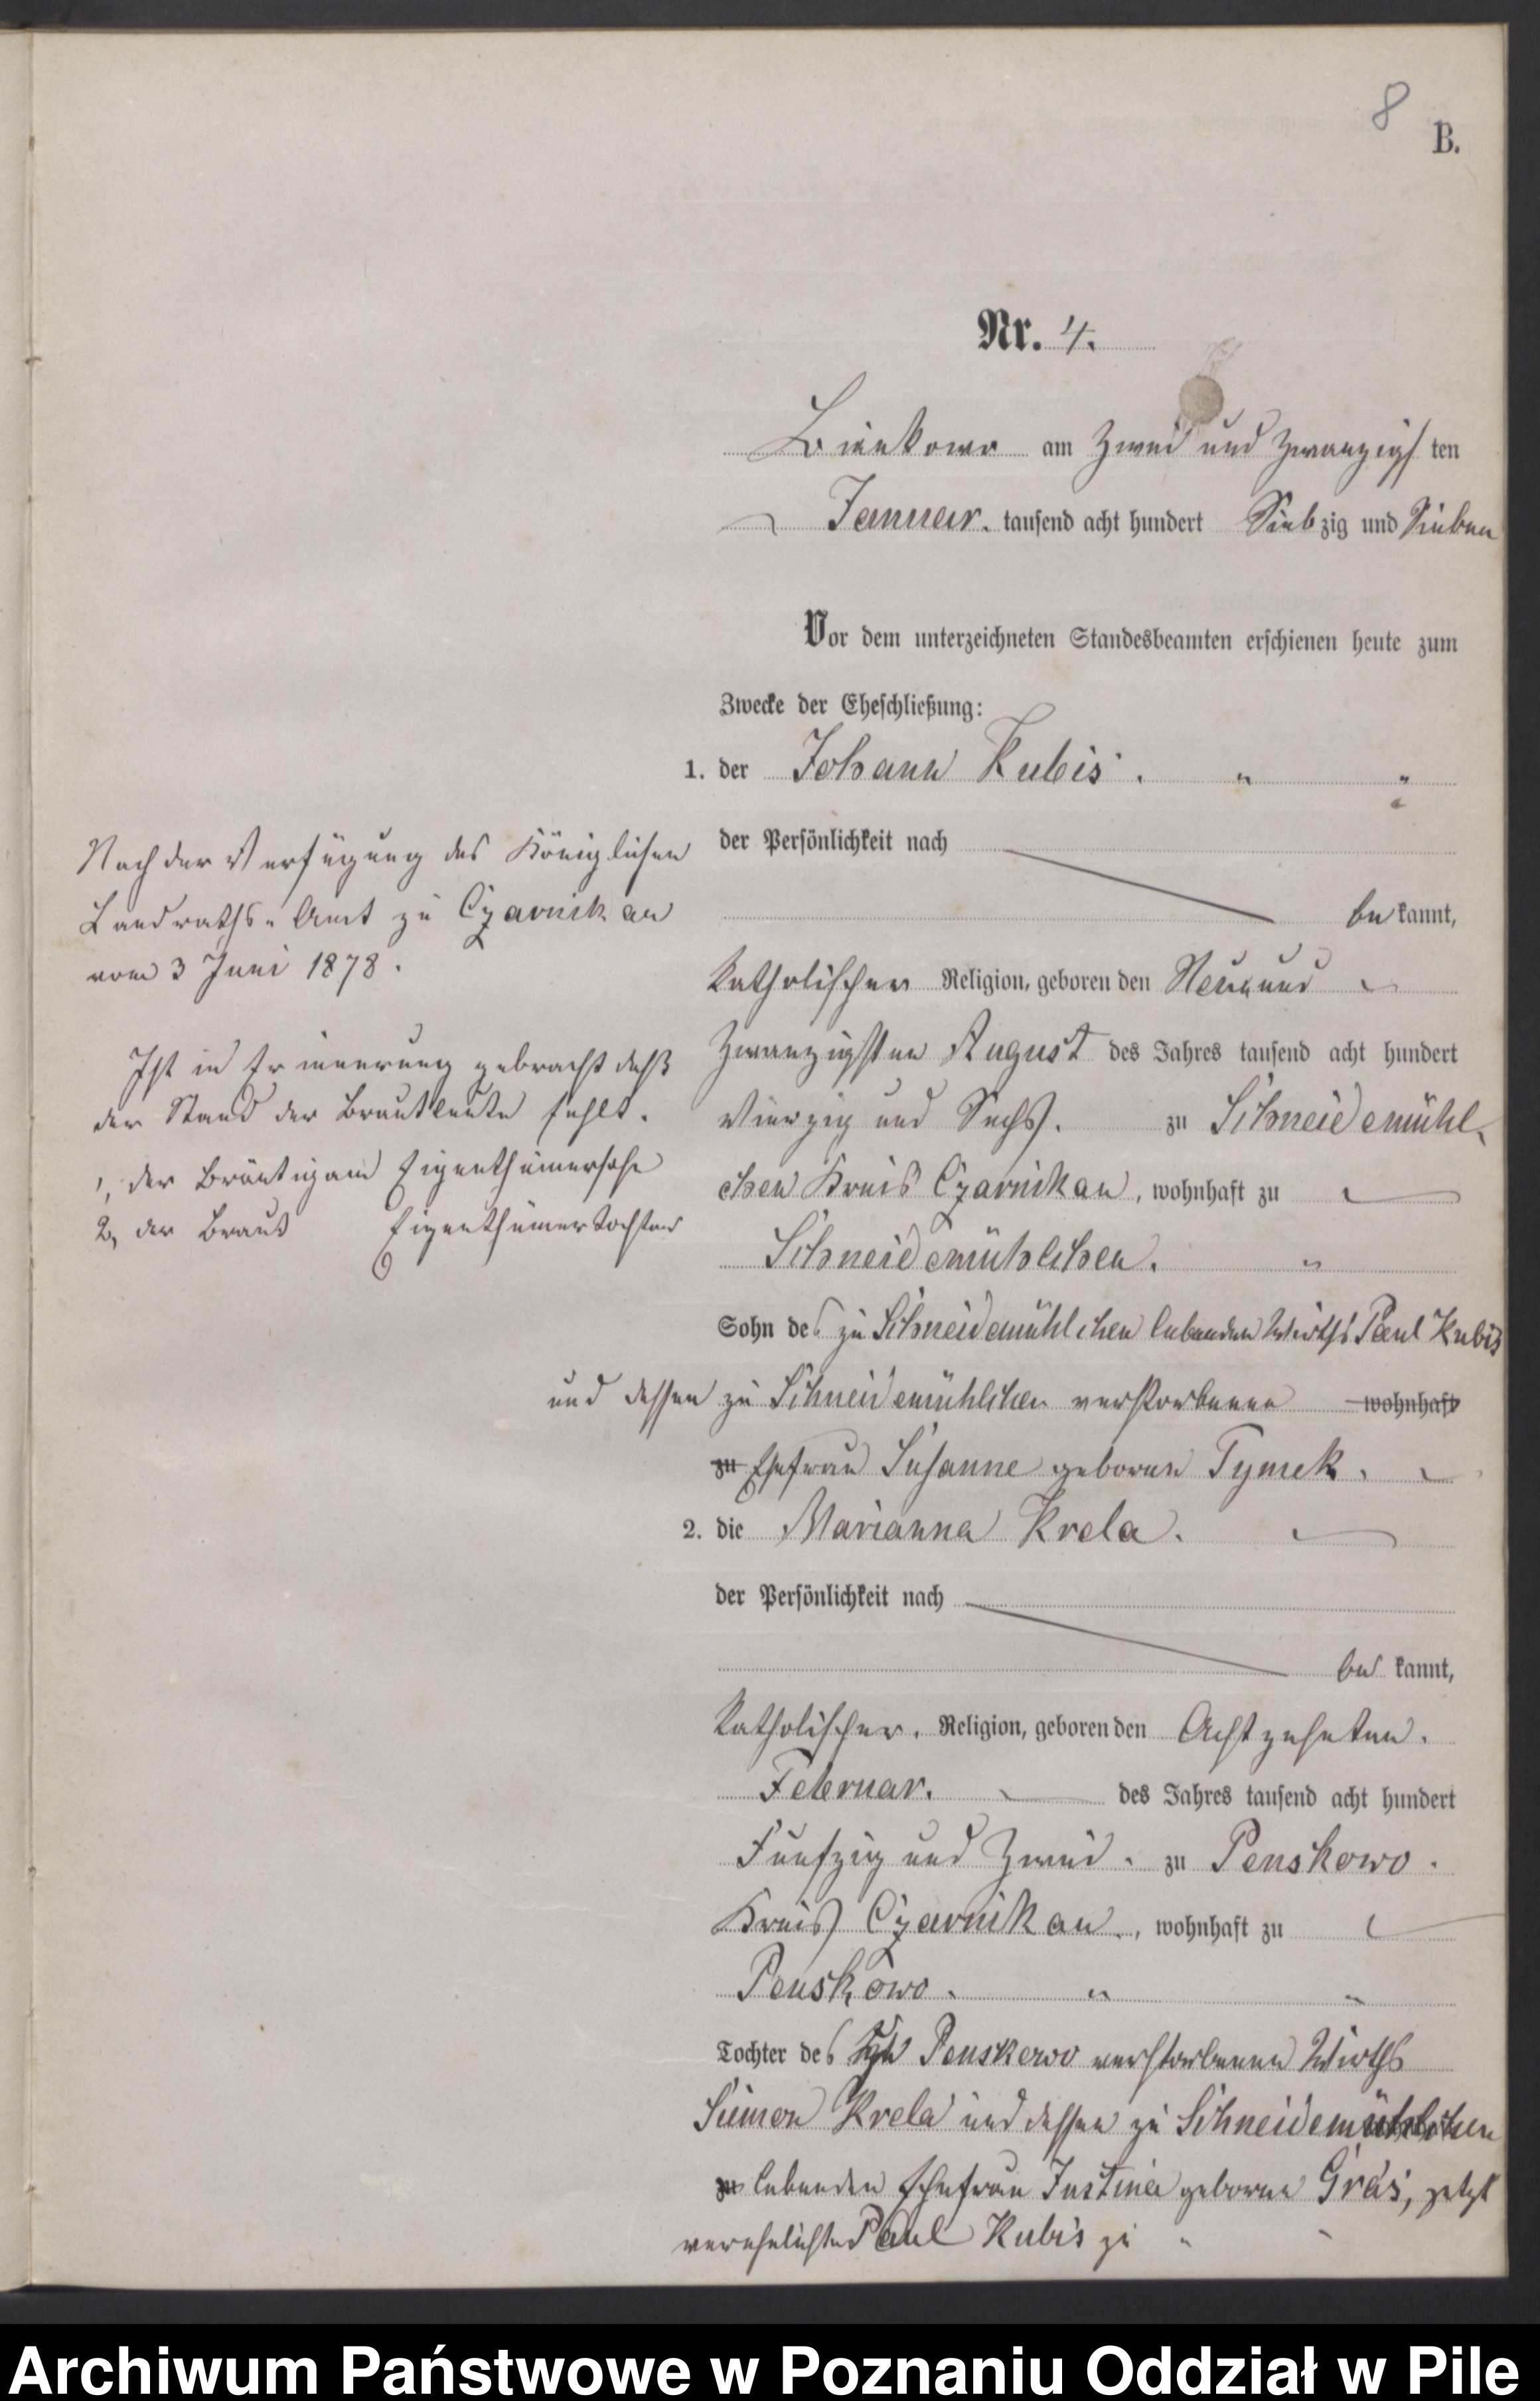 8
B.
Nr. 4.
am Zwei und Zwanzigsten
Januar. tausend acht hundert Siebzig und Sieben
Vor dem unterzeichneten Standesbeamten erschienen heute zum
Zwecke der Eheschließung:
1. der Johann Kubis. " "
der Persönlichkeit nach
bekannt,
katholischer Religion, geboren den Neunund
Zwanzigsten August des Jahres tausend acht hundert
Vierzig und Sechs. zu Schneidemühl-
chen Kreis Czarnikau, wohnhaft zu
Schneidemühlchen. "
Sohn des zu Schneidemühlchen lebenden Wirths Paul Kubis
und dessen zu Schneidemühlchen verstorbenen wohnhaft
zu Ehefrau Susanne geborne Tymek.
2. die Marianna Krela.
der Persönlichkeit nach
bekannt,
katholischer. Religion, geboren den Achtzehnten.
Februar. des Jahres tausend acht hundert
Fünfzig und Zwei. zu Penskowo.
Kreis Czarnikau, wohnhaft zu
Penskowo. " "
Tochter des Penskowo verstorbenen Wirths
Simon Krela und dessen zu Schneidemühlchen
zu lebenden Ehefrau Justina geborne Gras, jetzt
verehelichte Paul Kubis zu "
Nach der Verfügung des Königlichen
Landraths-Amt zu Czarnikau
vom 3 Juni 1878.
Ist in Erinnerung gebracht daß
der Stand der Brautleute fehlt.
1, der Bräutigam Eigenthümersohn
2, der Braut Eigenthümertochter
Archiwum Państwowe w Poznaniu Oddział w Pile